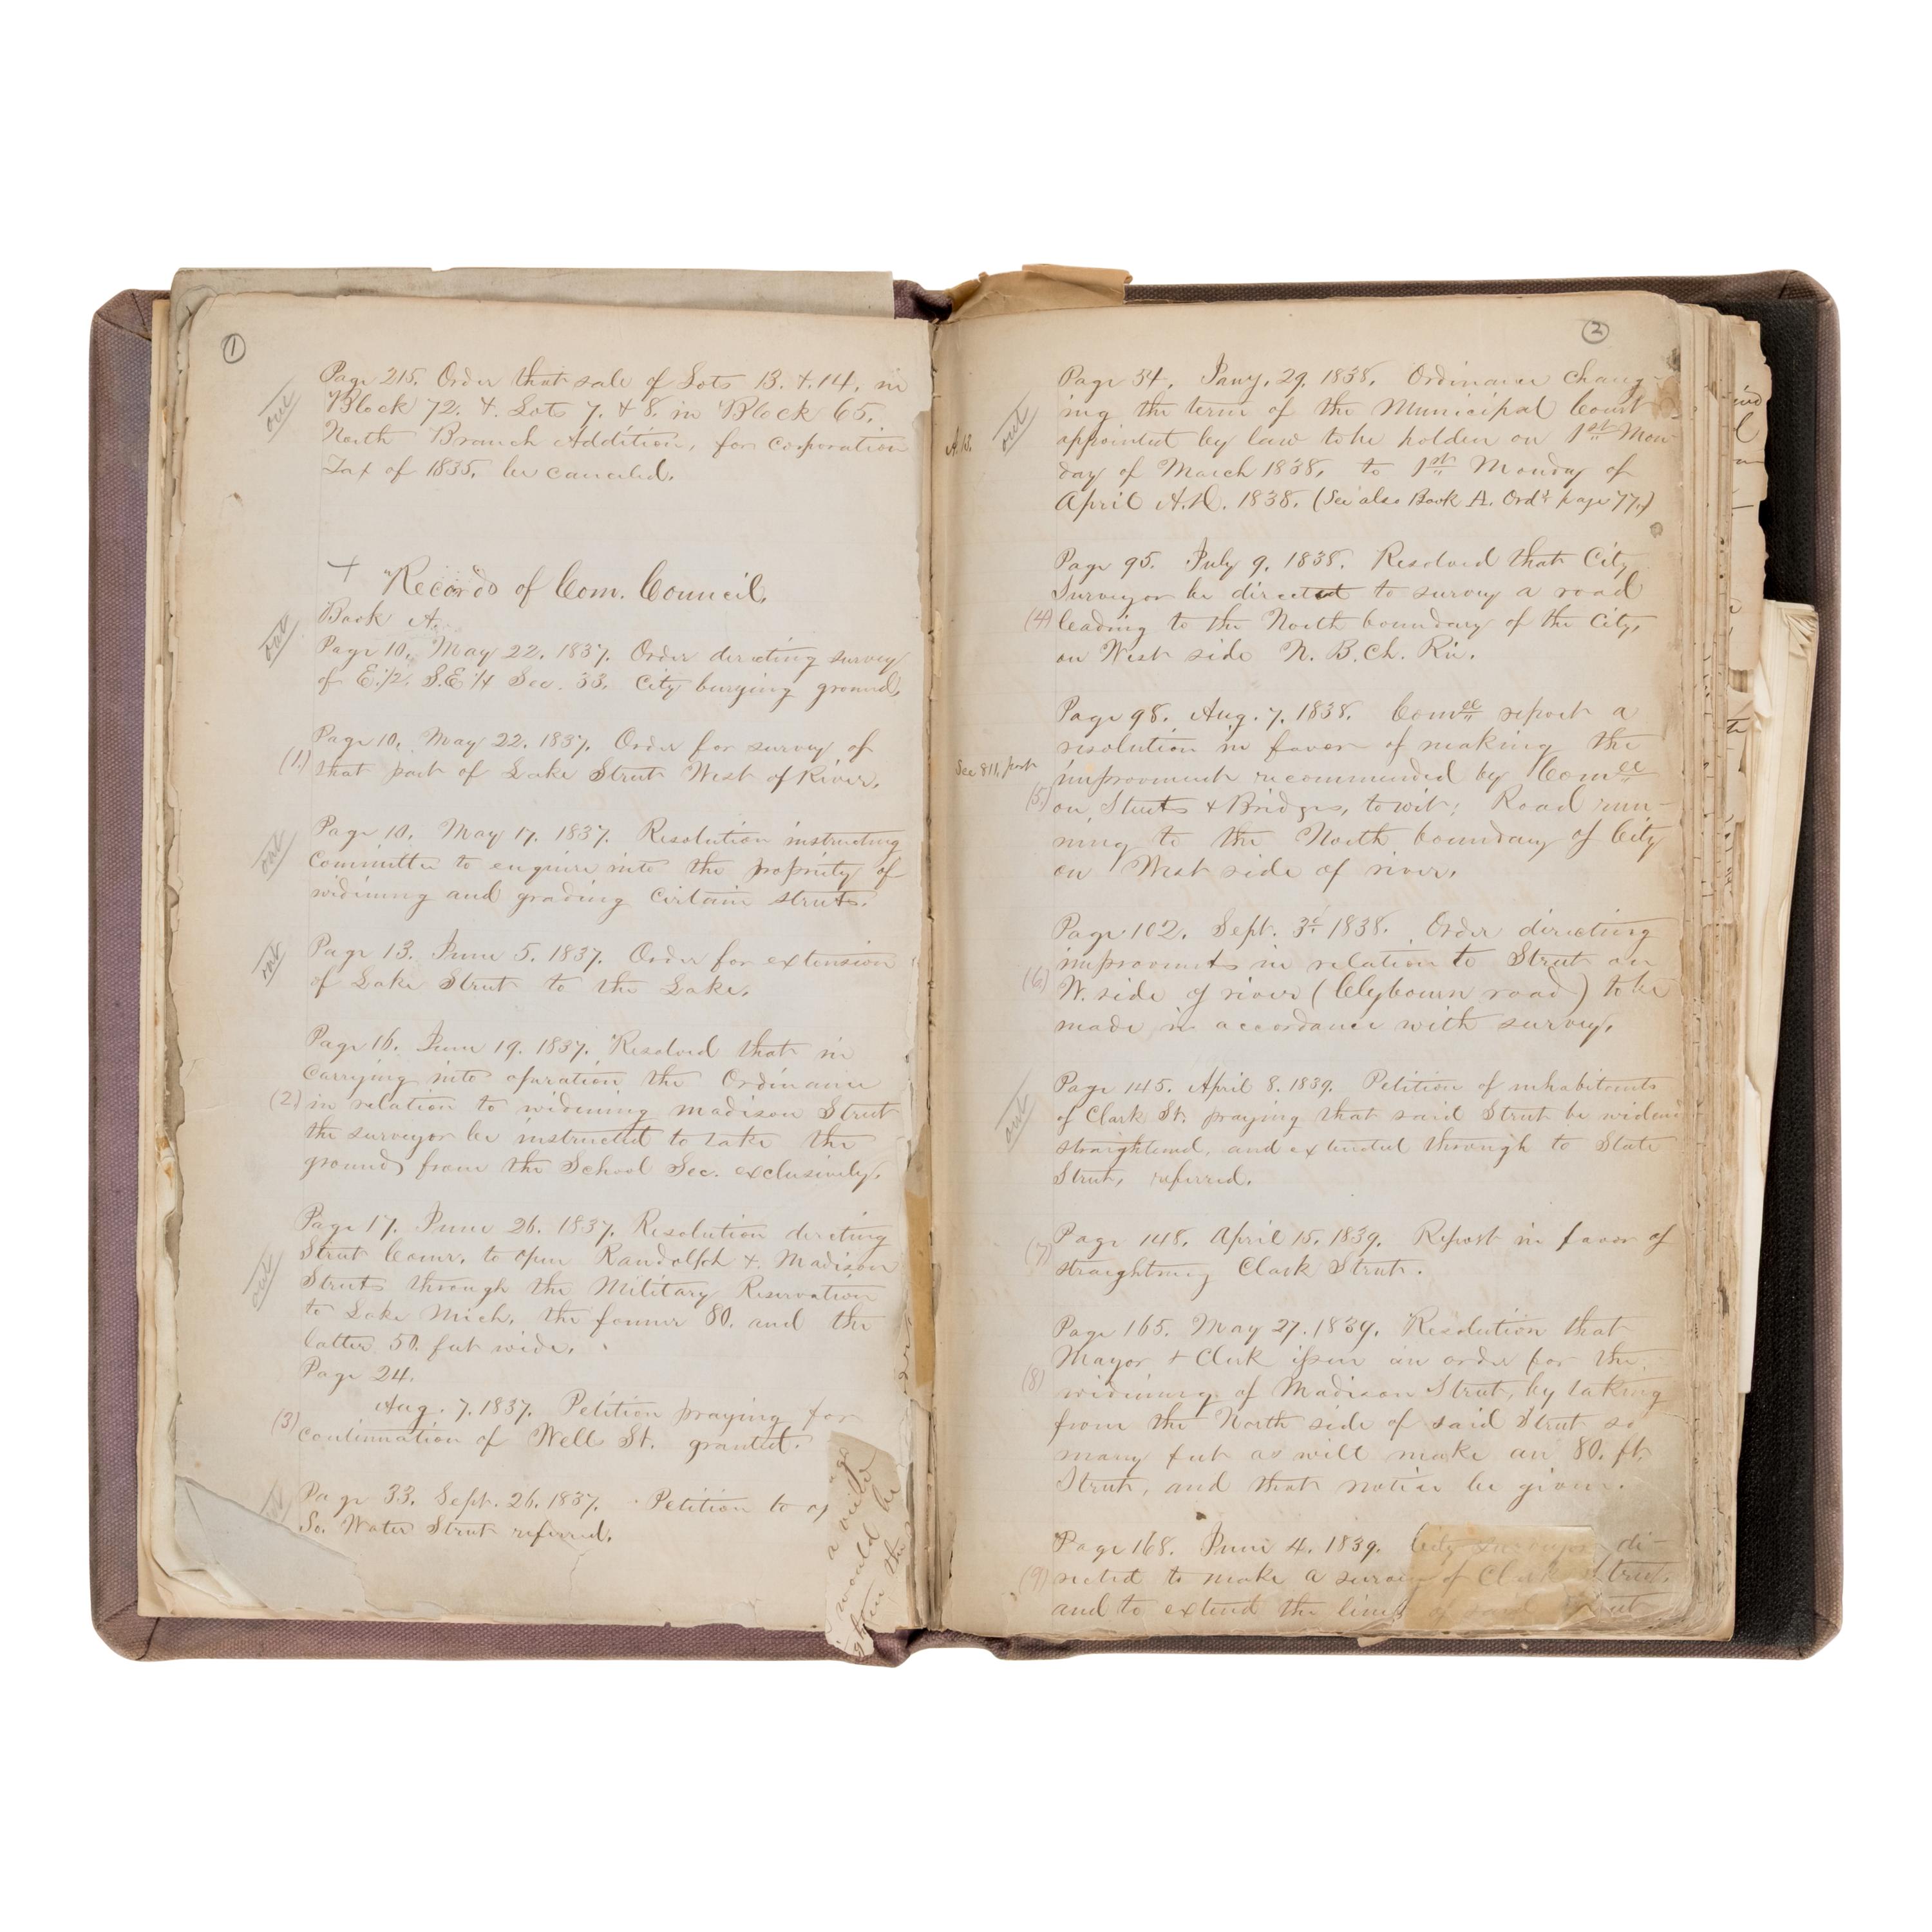 1
Page 215. Order that sale of Lots 13. & 14. in
out
Block 72. & Lots 7. & 8. in Block 65.
North Branch Addition, for corporation
Tax of 1835. be canceled.
+ Records of Com. Council.
Book A.
out
Page 10. May 22. 1837. Order directing survey
of E. 1/2. S.E 1/4 Sec. 33. City burying ground,
Page 10. May 22. 1837. Order for survey of
(1.) that part of Lake Street West of River.
Page 10. May 17. 1837. Resolution instructing
out
Committee to enquire into the propriety of
widening and grading certain streets.
out
Page 13. June 5. 1837. Order for extension
of Lake Street to the Lake.
Page 16. June 19. 1837. Resolved that in
carrying into operation the Ordinance
(2) in relation to widening Madison Street
the surveyor be instructed to take the
ground from the School Sec. exclusively.
Page 17. June 26. 1837. Resolution directing
out
Street Comr. to open Randolph & Madison
Streets through the Military Reservation
to Lake Mich. the former 80. and the
latter 50. feet wide.
Page 24.
Aug. 7. 1837. Petition praying for
(3) continuation of Well St. granted.
Page 33. Sept. 26. 1837. Petition to
So. Water Street referred.
would be
2
Page 34. Jany. 29. 1838. Ordinance chang-
out
ing the term of the Municipal Court
appointed by law to be holden on 1st Mon
day of March 1838. to 1st Monday of
April A.D. 1838. (See also Book A. Ords page 77.)
Page 95. July 9. 1838. Resolved that City
Surveyor be directed to survey a road
(4) leading to the North boundary of the City,
on West side N. B. Ch. Riv.
Page 98. Aug. 7. 1838. Comee report a
resolution in favor of making the
See 811, post
improvement recommended by Comee
(5) on Streets & Bridges, to wit: Road run-
ning to the North boundary of City
on West side of river.
Page 102. Sept. 3d 1838. Order directing
improvmts in relation to Street on
(6) W. side of river (Clybourn road) to be
made in accordance with survey.
Page 145. April 8. 1839. Petition of inhabitants
out
of Clark St. praying that said Street be widened
straightened, and extended through to State
Street, referred.
Page 148. April 15. 1839. Report in favor of
(7) straightning Clark Street.
Page 165. May 27. 1839. Resolution that
Mayor & Clerk issue an order for the
(8) widening of Madison Street, by taking
from the North side of said Street so
many feet as will make an 80. ft.
Street, and that notice be given.
Page 168. June 4. 1839. City Surveyor di-
(9) rected to make a survey of Clark Street.
and to extend the lines of said Street